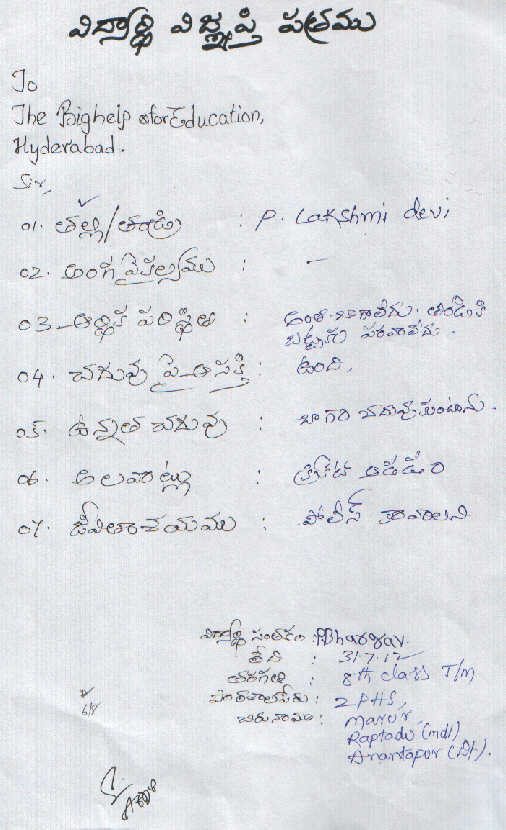 విద్యార్థి విజ్ఞప్తి పత్రము
To
The Bighelp for Education,
Hyderabad.
Sir,
01. తల్లి/తండ్రి : P. Lakshmi devi
02. అంగవైకల్యము : -
03. ఆర్థిక పరిస్థితి : అంత బాగాలేదు. తండ్రికి
పరవాలేదు.
04. చదువు పై ఆసక్తి : ఉంది.
05. ఉన్నత చదువు : బాగా చదువుకుంటాను.
06. అలవాట్లు : ఆడడం
07. జీవితాశయము : పోలీస్ కావాలని
విద్యార్థి సంతకం : Bhargav.
తేది : 31.7.12
తరగతి : 8th class T/M
పాఠశాలపేరు : ZPHS,
చిరునామా : Marur,
Raptadu (mdl)
Anantapur (Dt).